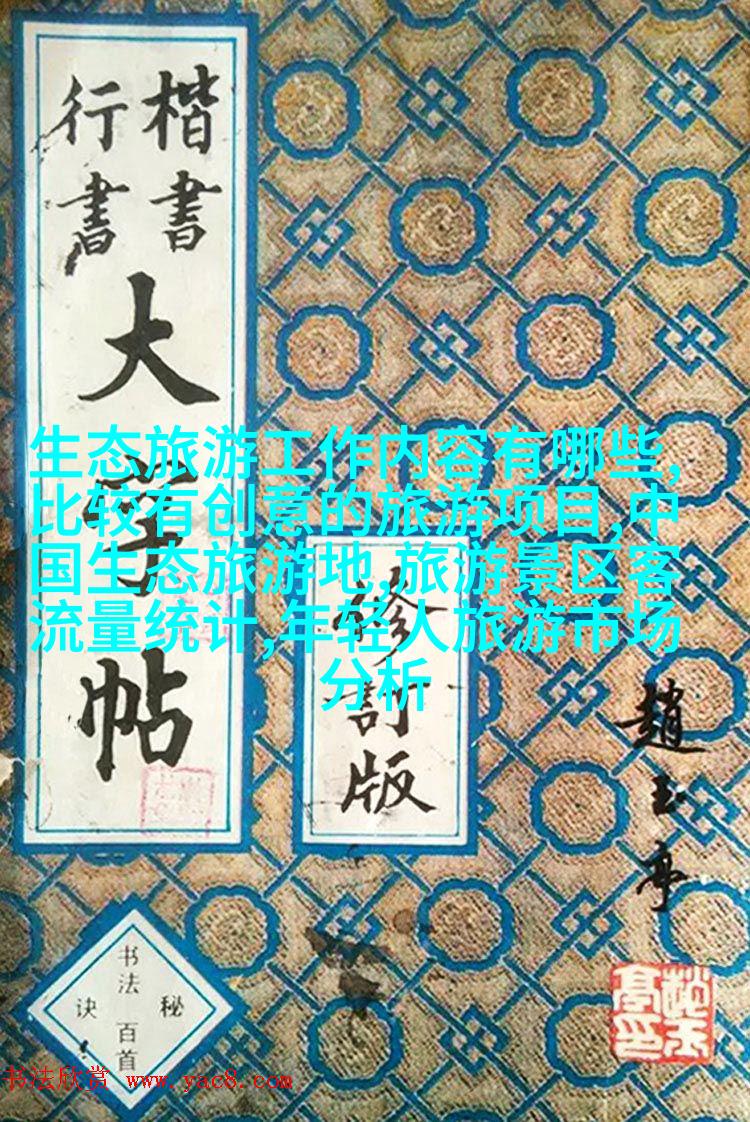 楷書
行書
大字帖
修訂版
趙玉亭
生态旅游工作内容有哪些,
比较有创意的旅游项目,中
国生态旅游地,旅游景区客
流量统计,年轻人旅游市场
分析
书法
秘诀
百首
书法欣赏 www.yac8.com